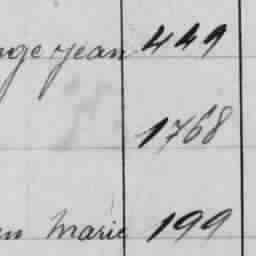 nge Jean 449
1768
en Marie 199